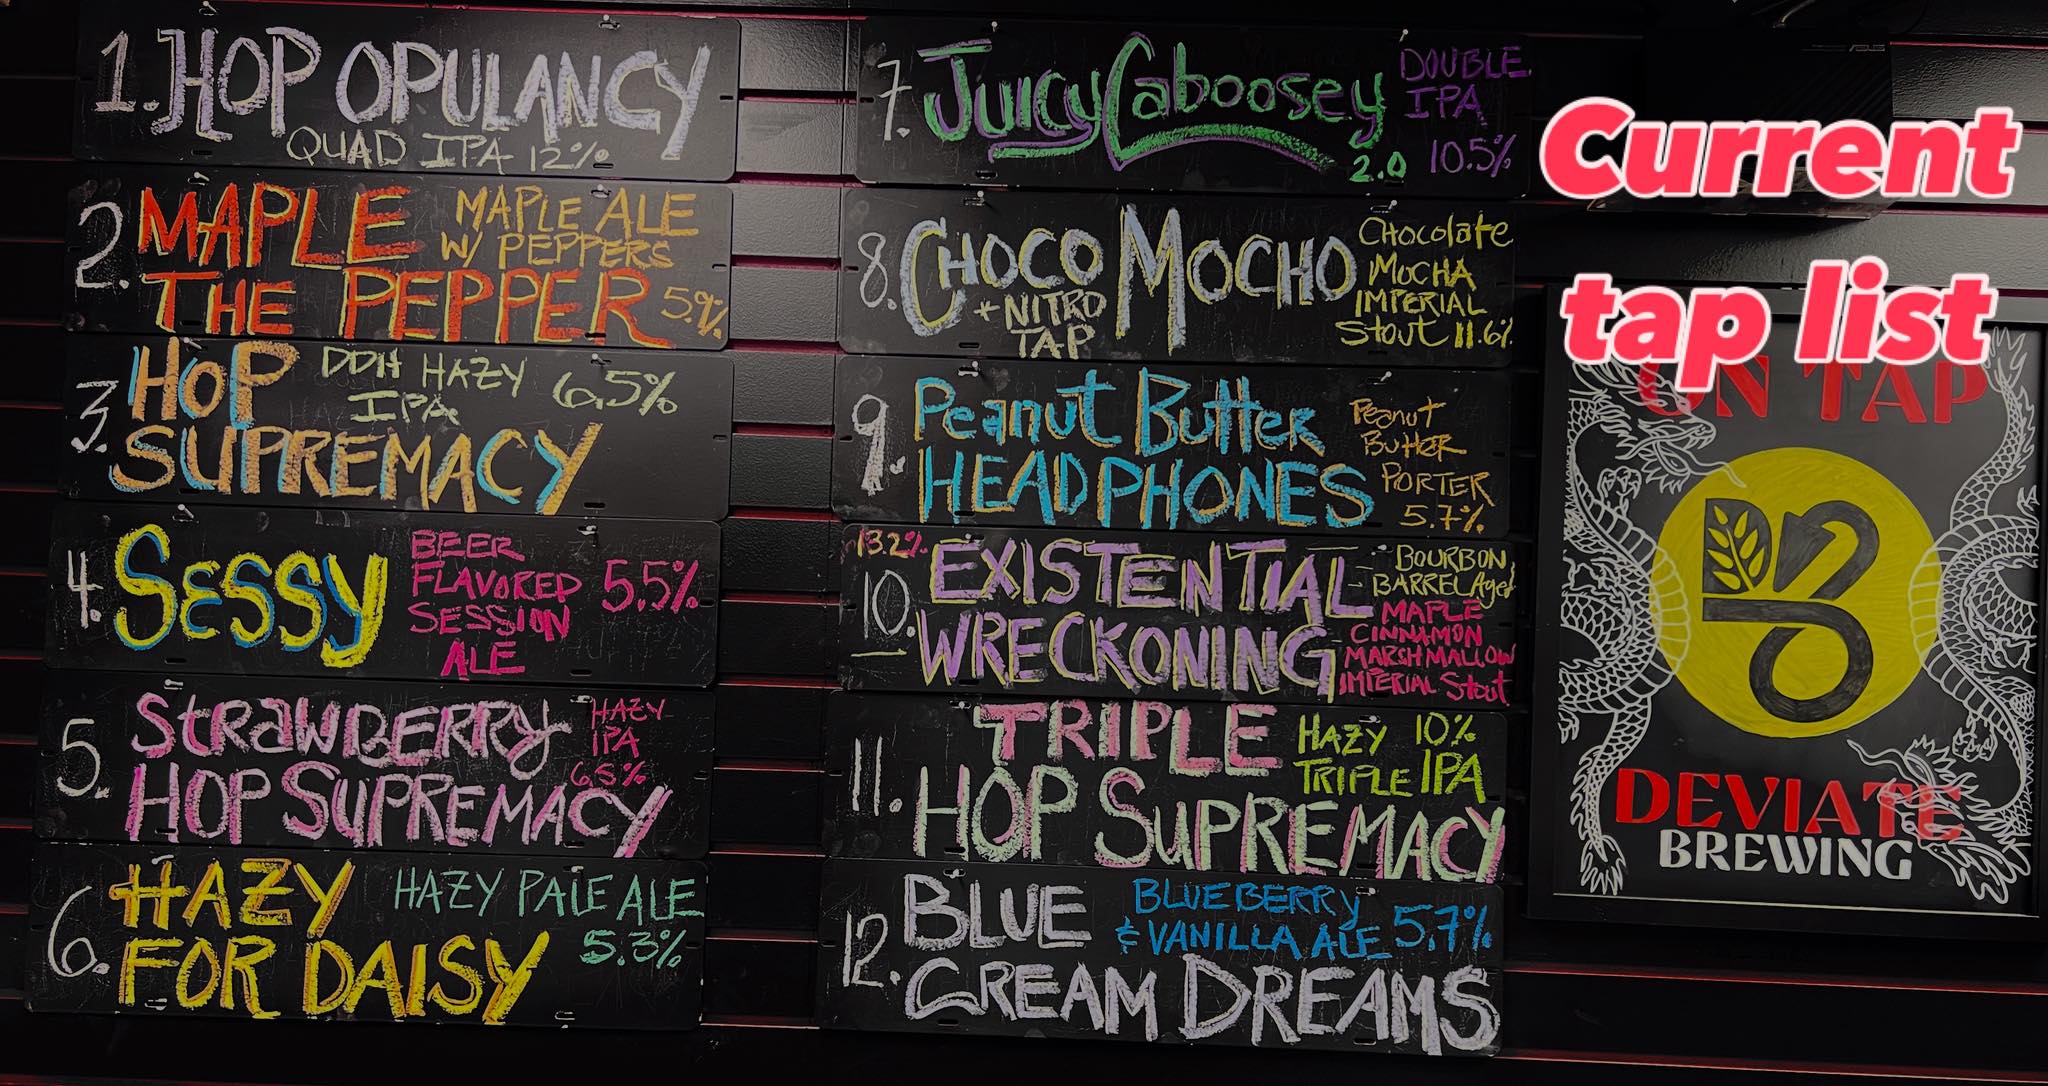 1. HOP OPULANCY
QUAD IPA 12%
2. MAPLE
THE PEPPER
MAPLE ALE
W/ PEPPERS
5.9%
3. HOP
SUPREMACY
DDH HAZY
IPA
6.5%
4. SESSY
BEER
FLAVORED
SESSION
ALE
5.5%
5. STRAWBERRY
HOP SUPREMACY
HAZY
IPA
6.5%
6. HAZY
FOR DAISY
HAZY PALE ALE
5.3%
7. Juicy Caboosey
2.0
DOUBLE
IPA
10.5%
8. CHOCO MOCHO
+ NITRO
TAP
Chocolate
MOCHA
IMPERIAL
Stout 11.6%
9. Peanut Butter
HEADPHONES
Peanut
Butter
PORTER
5.7%
13.2%
10. EXISTENTIAL
WRECKONING
BOURBON
BARREL Aged
MAPLE
CINNAMON
MARSHMALLOW
IMPERIAL Stout
11. TRIPLE
HOP SUPREMACY
HAZY 10%
TRIPLE IPA
12. BLUE
CREAM DREAMS
BLUEBERRY
& VANILLA ALE 5.7%
Current
tap list
ON TAP
DEVIATE
BREWING